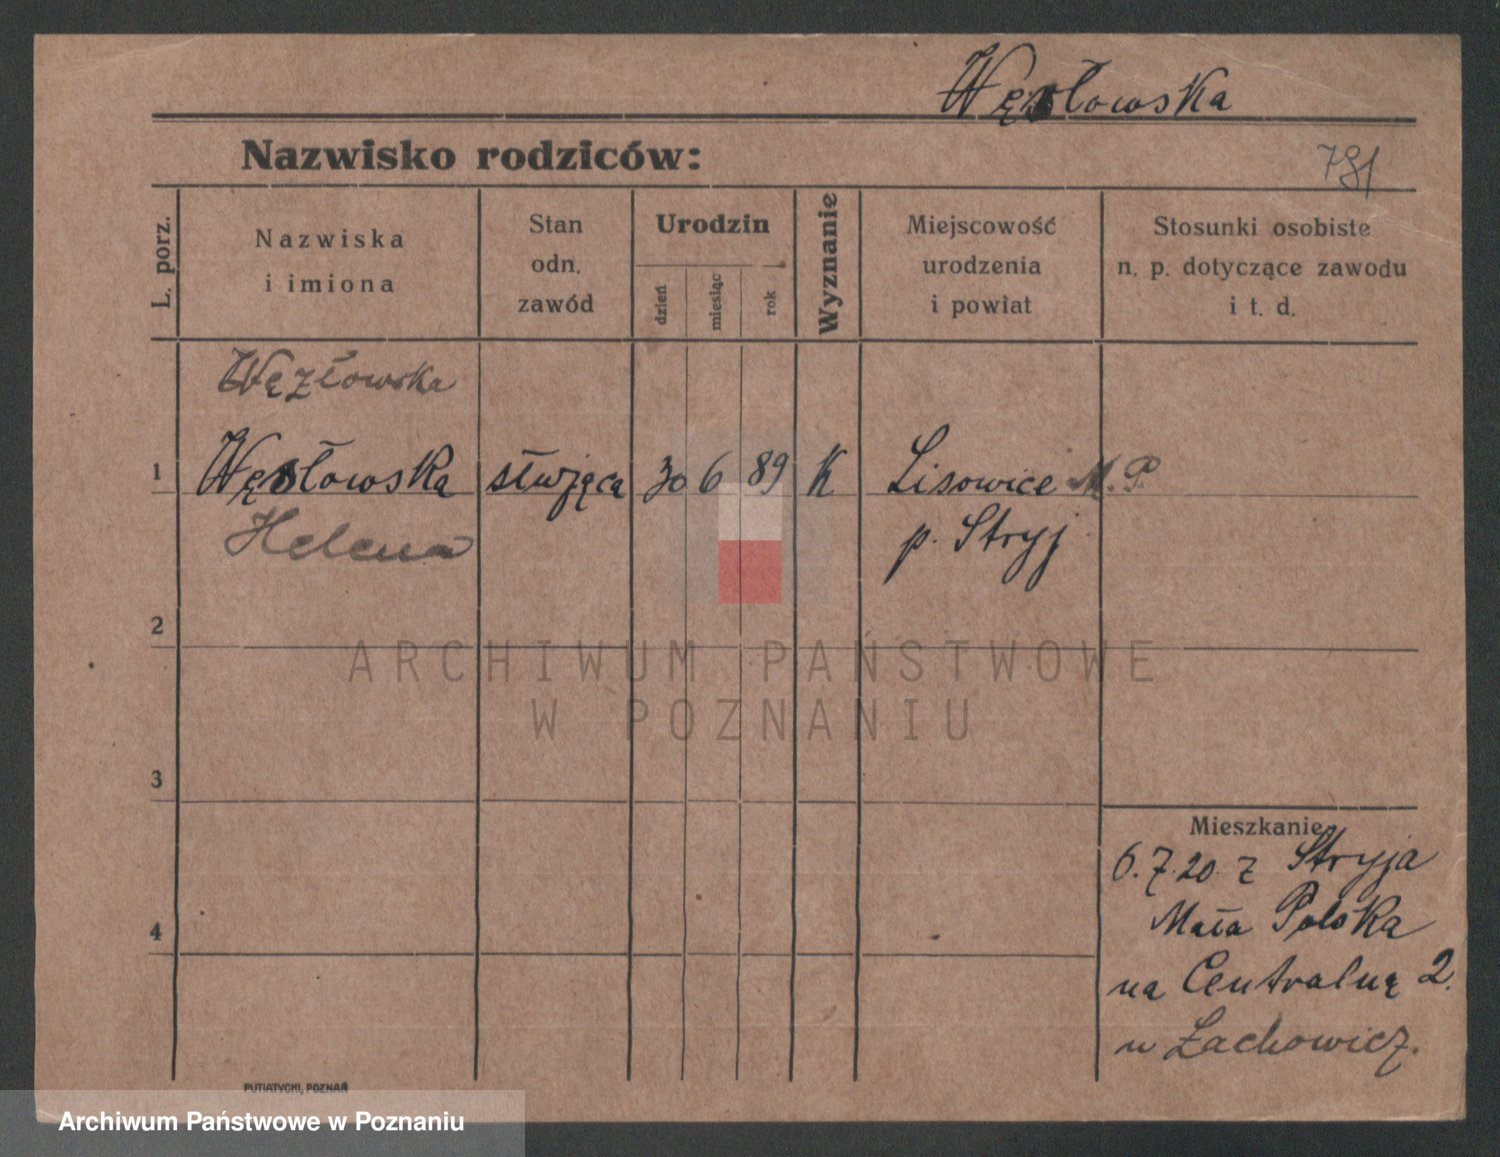 Węzłowska
Nazwisko rodziców:
781
L. porz.
Nazwiska
i imiona
Stan
odn.
zawód
Urodzin
dzień
miesiąc
rok
Wyznanie
Miejscowość
urodzenia
i powiat
Stosunki osobiste
n. p. dotyczące zawodu
i t. d.
Węzłowska
1 Węzłowska służąca 30 6 89 K Lisowice M. P.
Helena p. Stryj
2
ARCHIWUM PAŃSTWOWE
W POZNANIU
3
Mieszkanie
6.7.20 z Stryja
4 Mała Polska
na Centralną 2.
u Lachowicz.
PUTIATYCKI, POZNAŃ
Archiwum Państwowe w Poznaniu